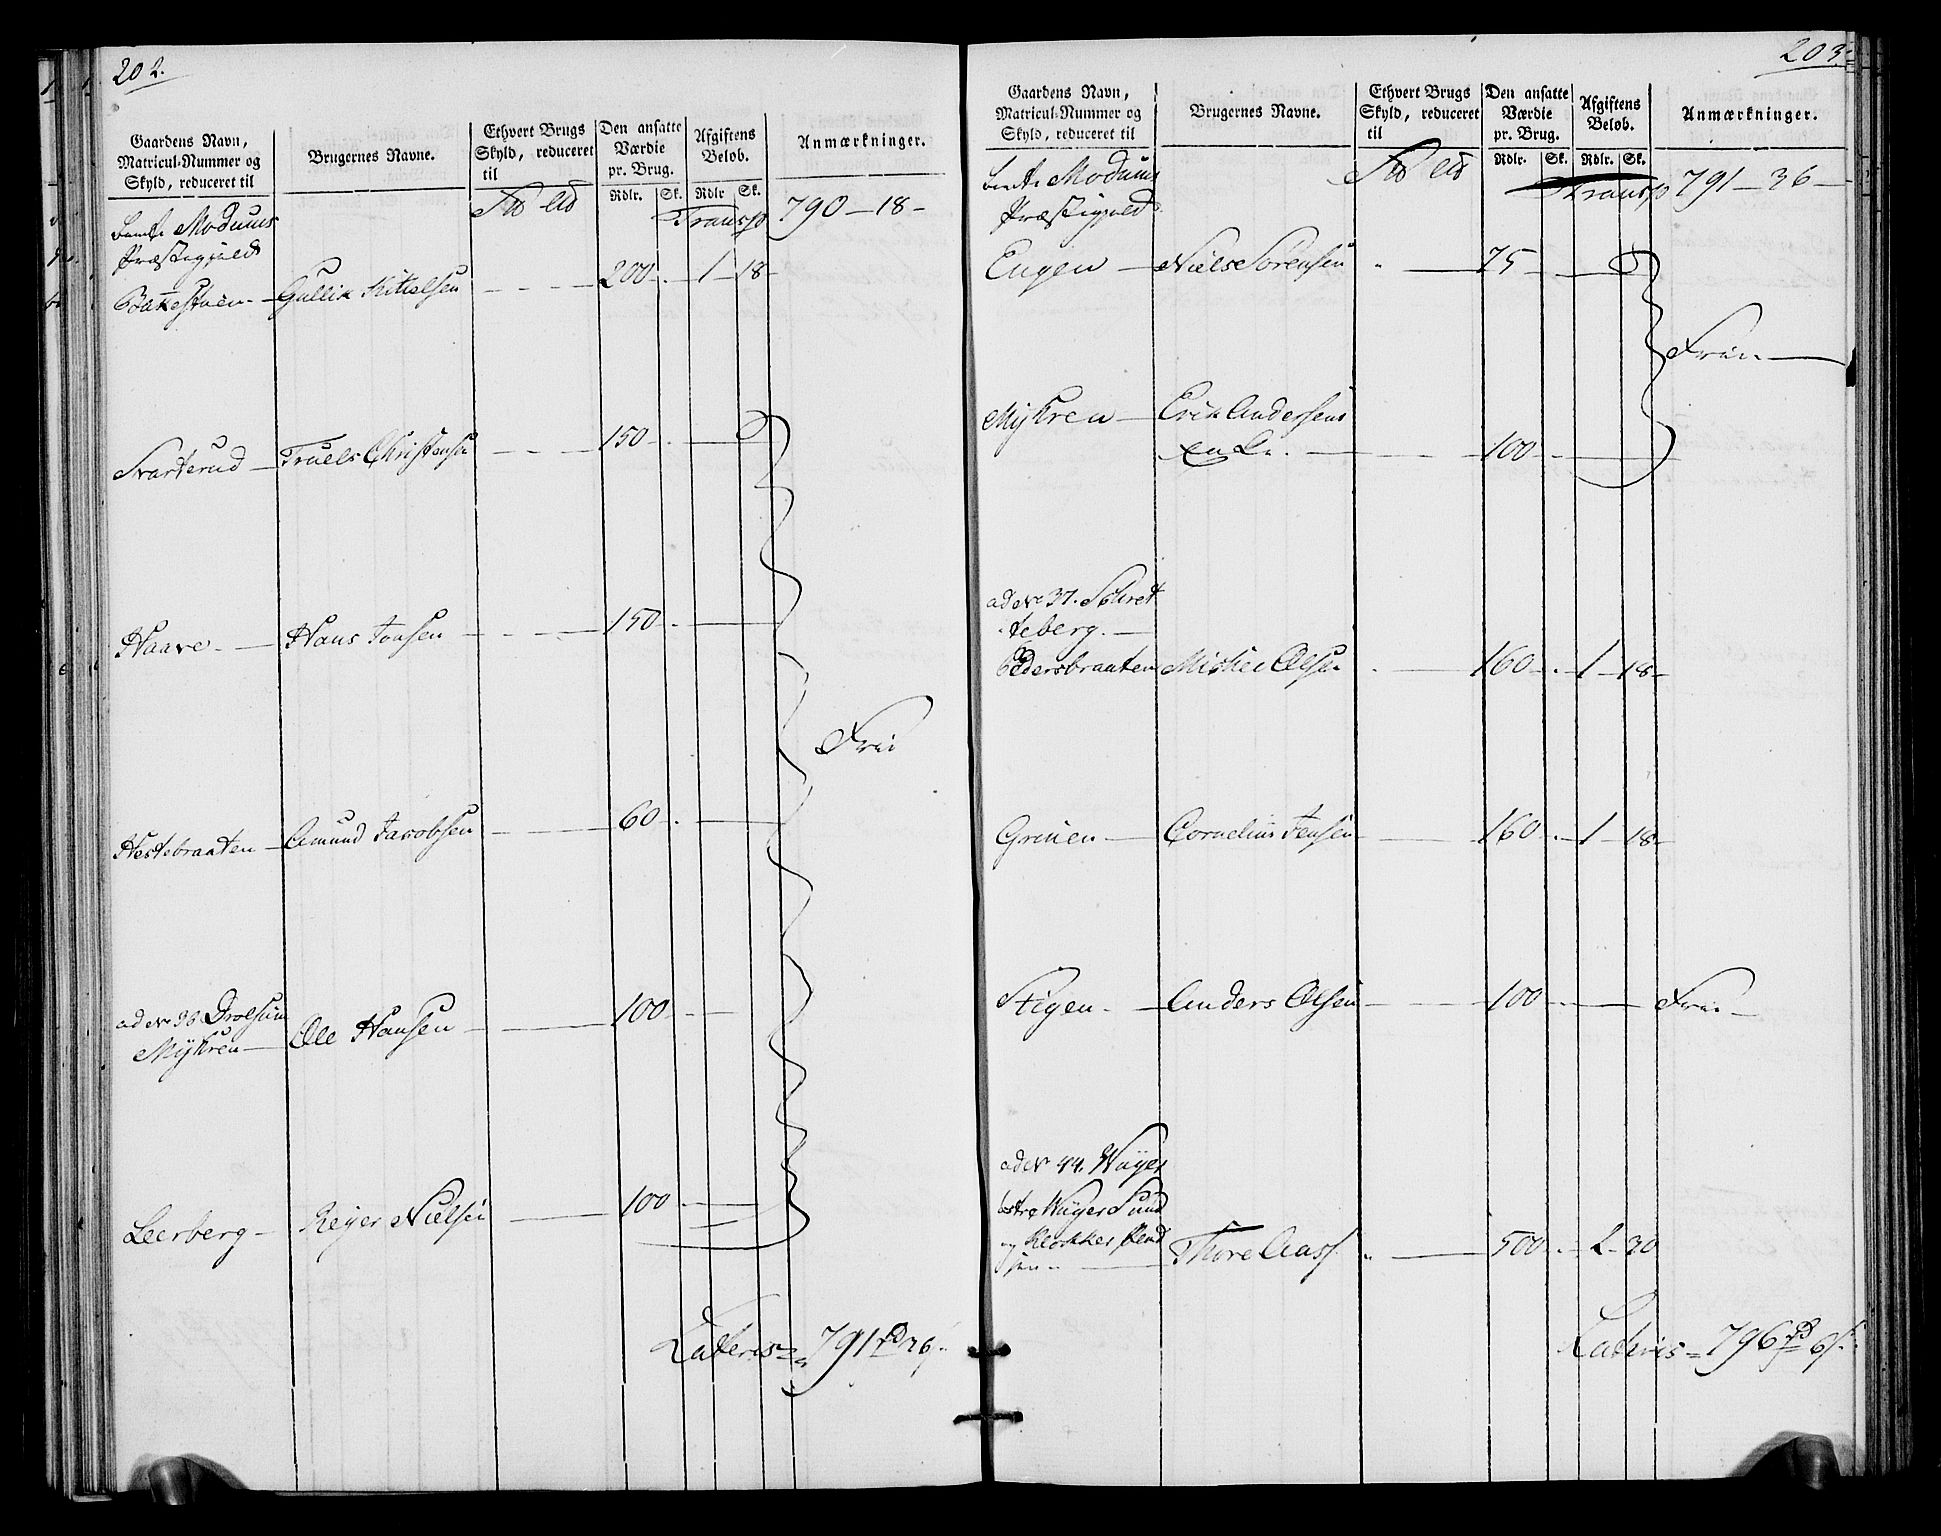 202.
Gaardens Navn, Matricul-Nummer og Skyld, reduceret til
Brugernes Navne.
Ethvert Brugs Skyld, reduceret til
Den ansatte Værdie pr. Brug.
Afgiftens Beløb.
Anmærkninger.
Rdlr. Sk. Rdlr Sk.
Modums Transp 790 - 18 -
Præstegjeld
Bakestuen - Gullik Kittelsen - - - 200 - . - 1 - 18 -
Svarterud - Truels Christensen - - - 150 - . -
Haave . - Hans Jonsen - - - 150 - . -
Frie
Hestebraaten - Amund Jacobsen - - - 60 . -
ad No 38 Drolsum
Mykren - Ole Hansen - - - 100 . - -
Leerberg - Reyer Nielsen - - 100 . -
Lateris = 791 rd 36 s.
203.
Gaardens Navn, Matricul-Nummer og Skyld, reduceret til
Brugernes Navne.
Ethvert Brugs Skyld, reduceret til
Den ansatte Værdie pr. Brug.
Afgiftens Beløb.
Anmærkninger.
Rdlr. Sk. Rdlr. Sk.
Modums Transp 791 - 36 -
Præstegjeld
Engen - Niels Sörensen " - 75 - . -
Frie -
Mykren - Erik Andersens
Enke . - - 100 - . -
ad No 37. Schret
teberg. -
Pedersbraaten Mickel Olsen . - 160 - . - 1 - 18 -
Grinen - Cornelius Jensen - - 160 - . - 1 - 18 -
Stigen . - Anders Olsen - - 100 - - Frie -
ad No 44. Wiiger
Wiiger Sund
og Klokker
Thore Aass. " - 500 . - 2 - 30
Lateris = 796 rd 6 s.